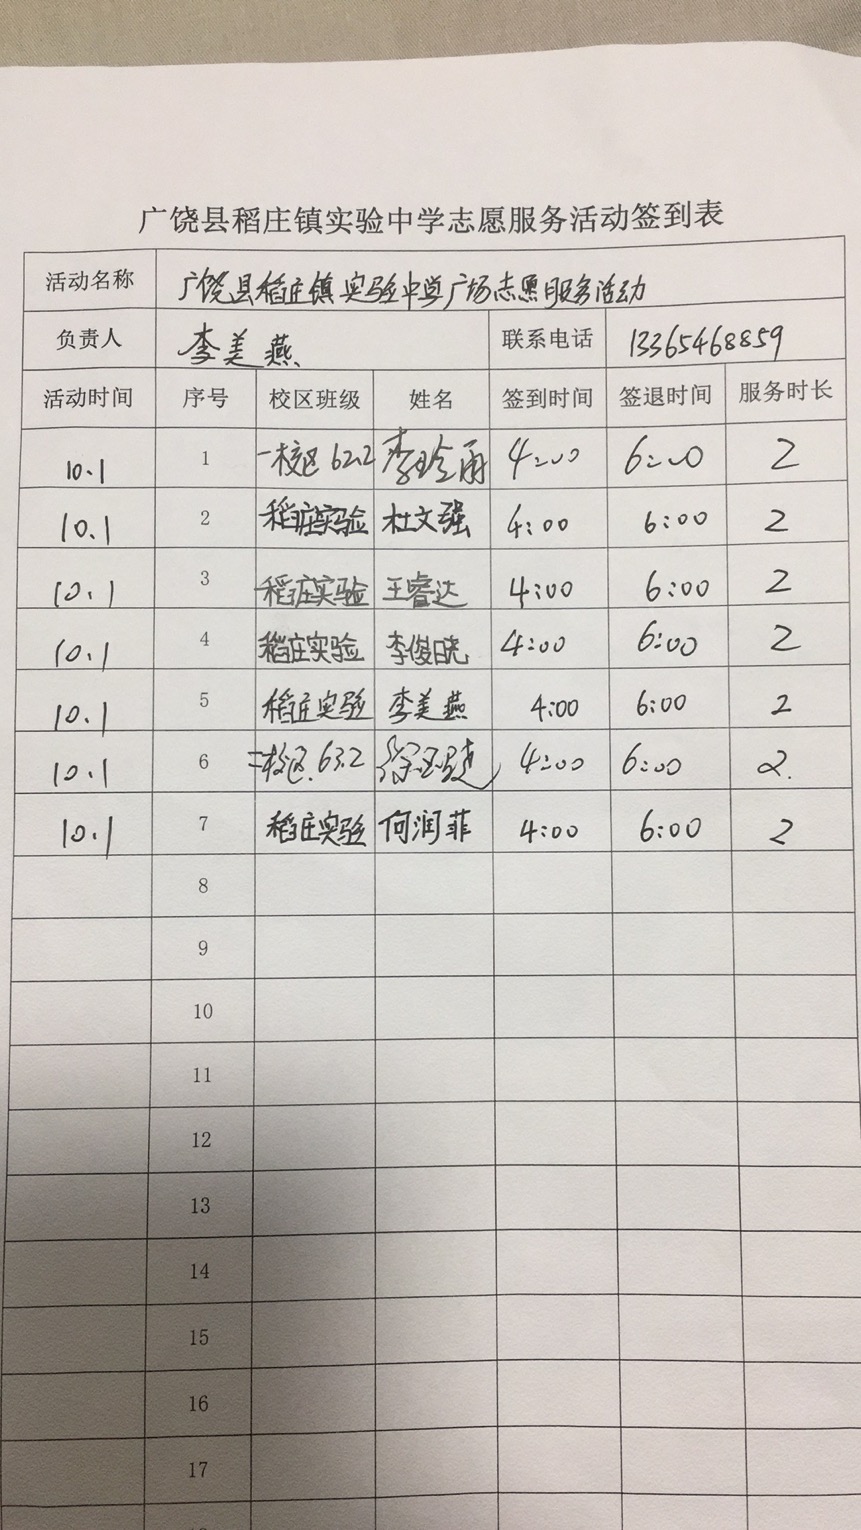 广饶县稻庄镇实验中学志愿服务活动签到表
活动名称 广饶县稻庄镇实验中学广场志愿服务活动
负责人 李美燕 联系电话 13365468859
活动时间 序号 校区班级 姓名 签到时间 签退时间 服务时长
10.1 1 一校区 62.2 李玲雨 4:00 6:00 2
10.1 2 稻庄实验 杜文强 4:00 6:00 2
10.1 3 稻庄实验 王睿达 4:00 6:00 2
10.1 4 稻庄实验 李俊晓 4:00 6:00 2
10.1 5 稻庄实验 李美燕 4:00 6:00 2
10.1 6 二校区.63.2 4:00 6:00 2.
10.1 7 稻庄实验 何润菲 4:00 6:00 2
8
9
10
11
12
13
14
15
16
17